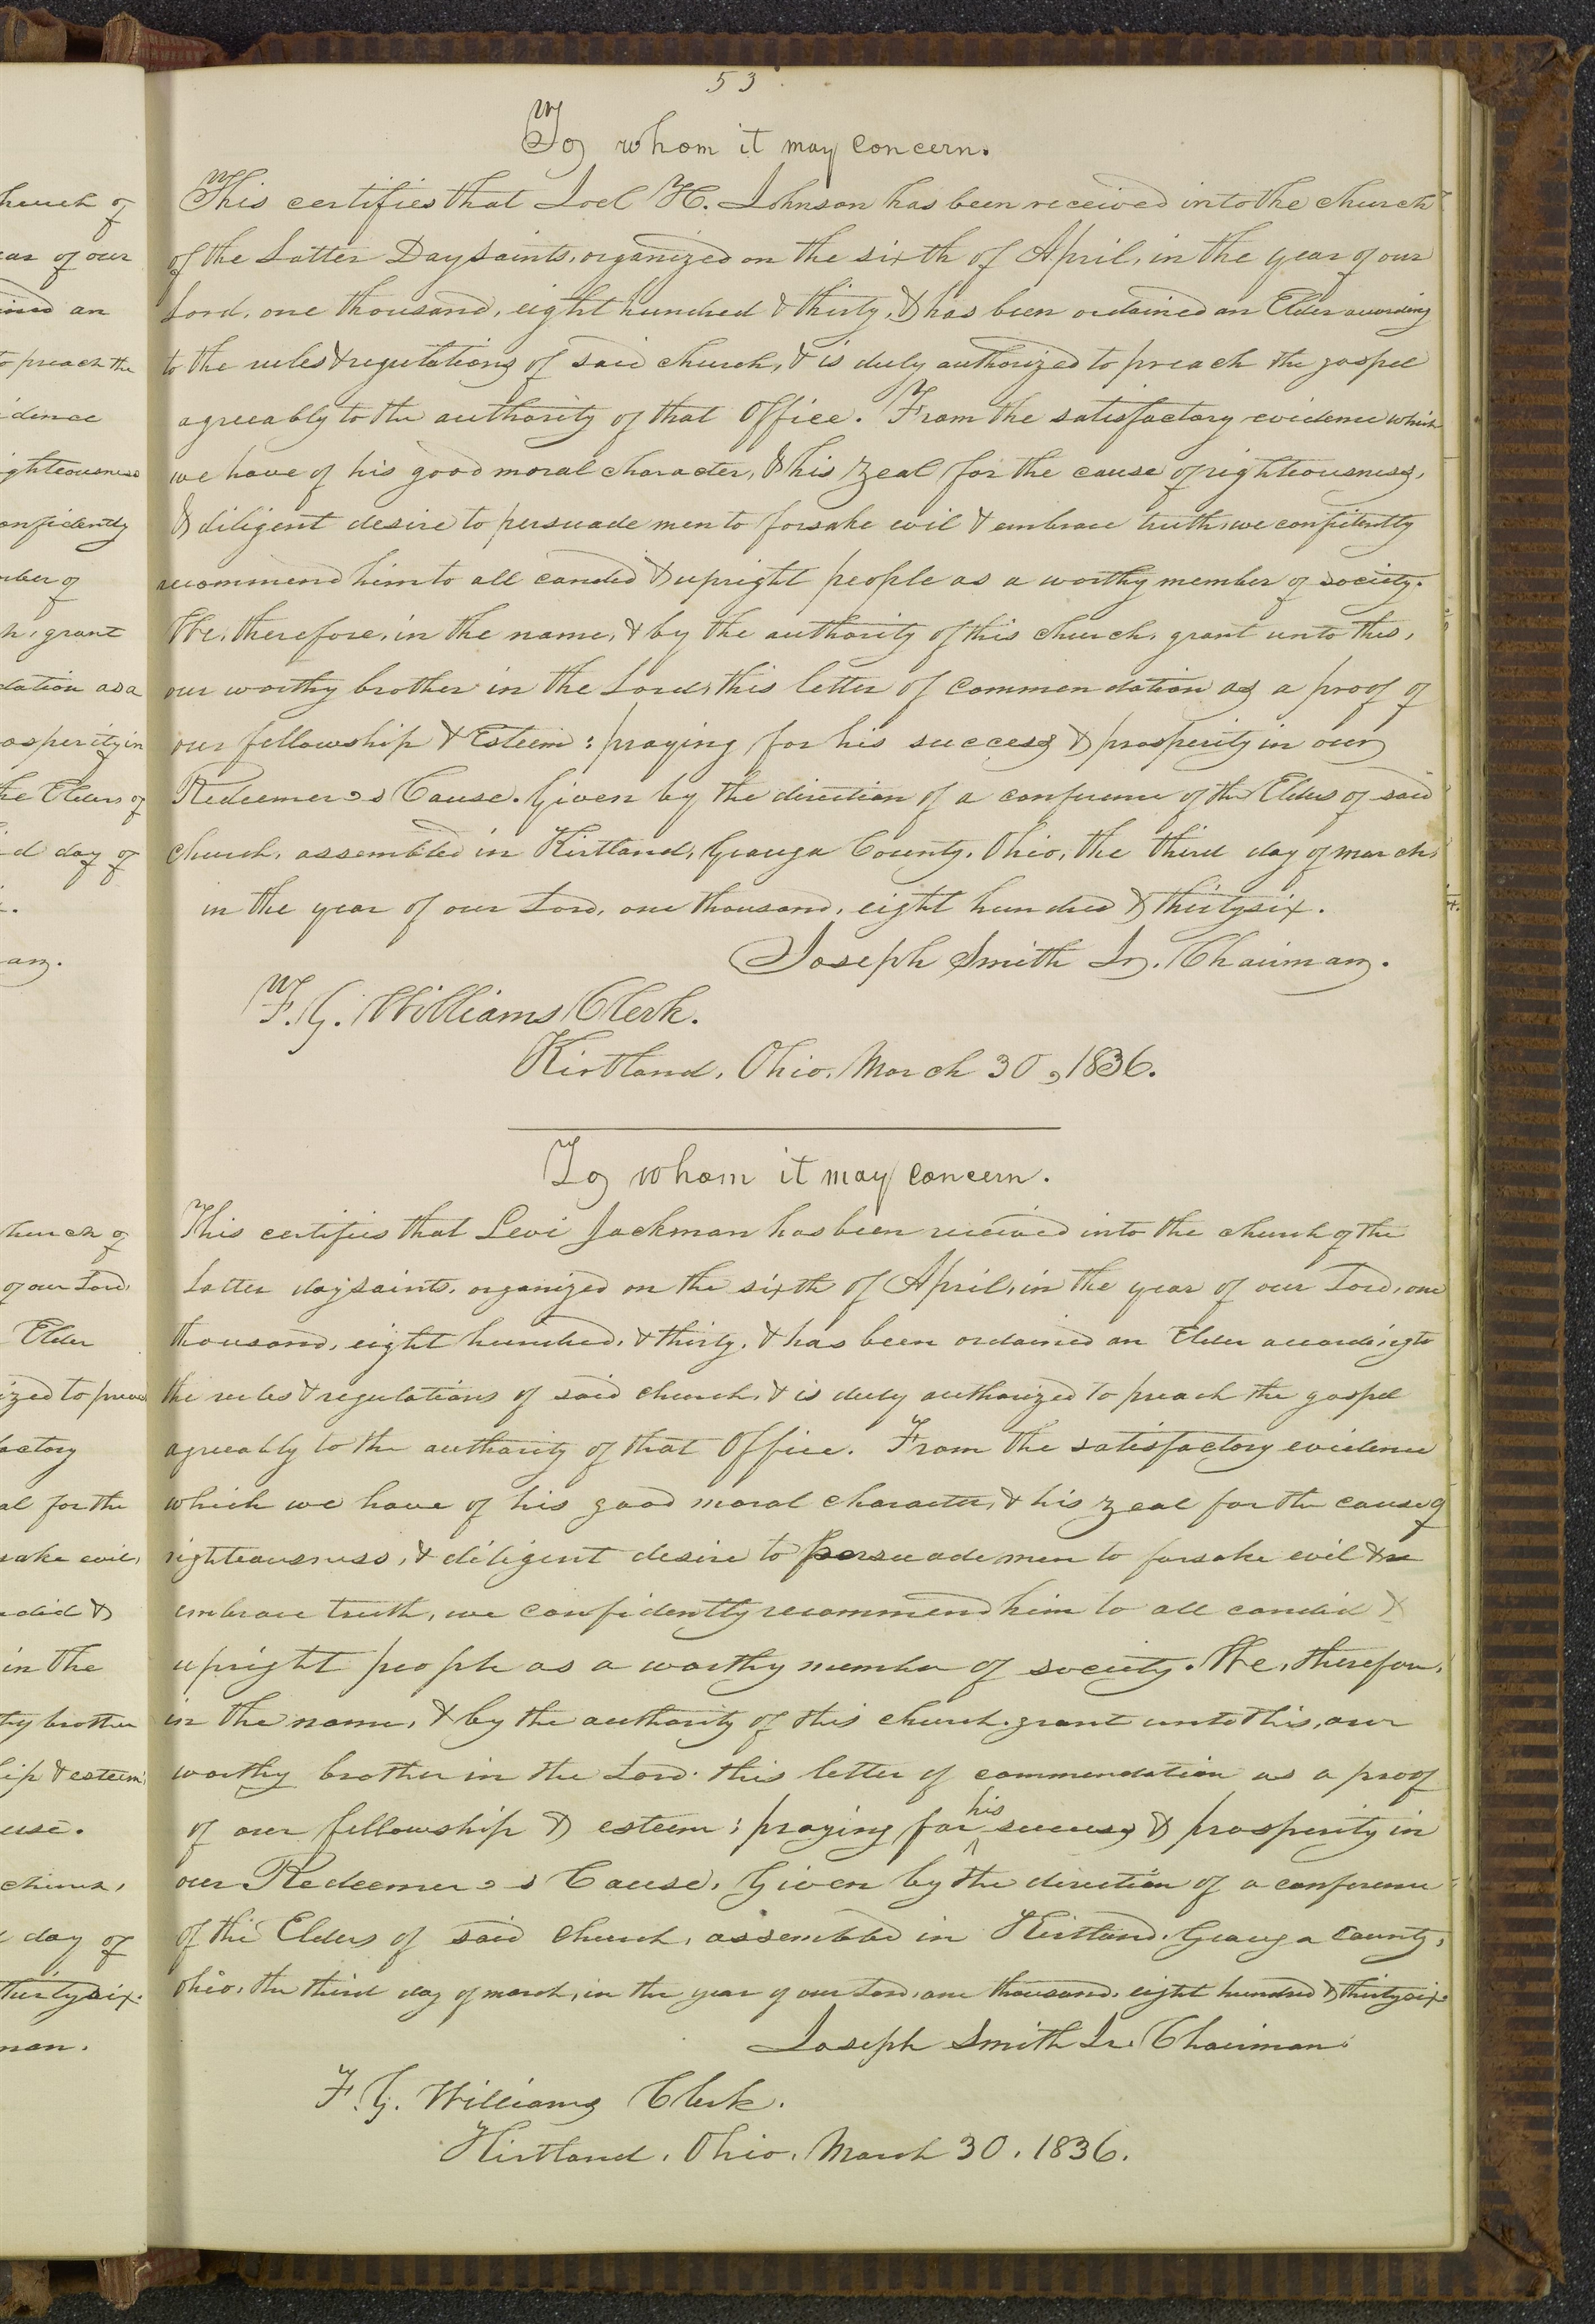 53
To whom it may concern.
This certifies that Joel H. Johnson has been received into the church
of the Latter Day saints, organized on the sixth of April, in the year of our
Lord, one thousand, eight hundred & thirty, & has been ordained an Elder according
to the rules & regulations of said church, & is duly authorized to preach the gospel
agreeably to the authority of that Office. From the satisfactory evidence which
we have of his good moral character, & his zeal for the cause of righteousness,
& diligent desire to persuade men to forsake evil & embrace truth, we confidently
recommend him to all candid & upright people as a worthy member of society.
We, therefore, in the name, & by the authority of this church, grant unto this,
our worthy brother in the Lord, this letter of commendation as a proof of
our fellowship & Esteem: praying for his success & prosperity in our
Redeemer's Cause. Given by the direction of a conference of the Elders of said
church, assembled in Kirtland, Geauga County, Ohio, the third day of march,
in the year of our Lord, one thousand, eight hundred & thirty six.
Joseph Smith Jr. Chairman.
F. G. Williams Clerk.
Kirtland, Ohio, March 30, 1836.
To whom it may concern.
This certifies that Levi Jackman has been received into the church of the
Latter day saints, organized on the sixth of April, in the year of our Lord, one
thousand, eight hundred, & thirty, & has been ordained an Elder according to
the rules & regulations of said church, & is duly authorized to preach the gospel
agreeably to the authority of that Office. From the satisfactory evidence
which we have of his good moral character, & his zeal for the cause of
righteousness, & diligent desire to persuade men to forsake evil &
embrace truth, we confidently recommend him to all candid &
upright people as a worthy member of society. We, therefore,
in the name, & by the authority of this church, grant unto this, our
worthy brother in the Lord, this letter of commendation as a proof
of our fellowship & esteem; praying for his success & prosperity in
our Redeemer's Cause. Given by the direction of a conference
of the Elders of said church, assembled in Kirtland, Geauga County,
Ohio, the third day of march, in the year of our Lord, one thousand, eight hundred & thirty six.
Joseph Smith Jr. Chairman.
F. G. Williams Clerk.
Kirtland, Ohio, March 30, 1836.